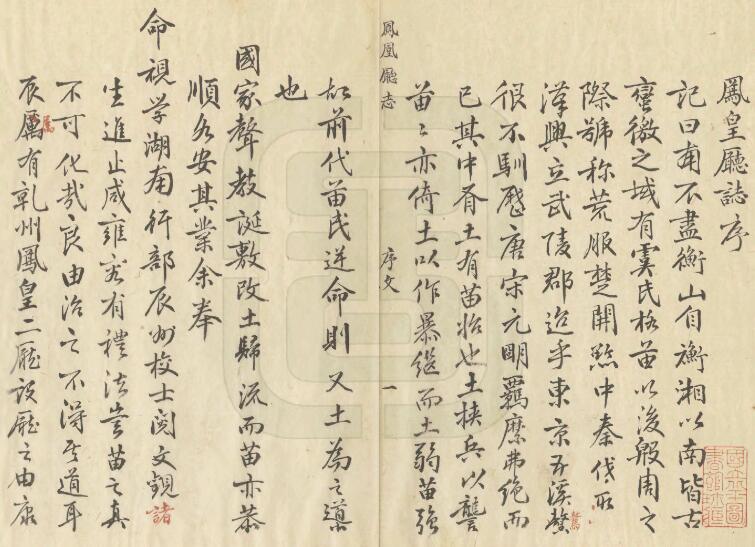 鳳皇廳誌序
記曰南不盡衡山自衡湘以南皆古
蠻徼之域有虞氏格苗以後殷周之
際號称荒服楚開黔中秦伐所
漢興立武陵郡迄乎東京五溪聱
很不馴歷唐宋元明羈縻弗絶而
已其中有土有苗始也土挾兵以讐
苗〻亦倚土以作暴繼而土弱苗强
鳳凰廳志 序文 一
故前代苗民逆命則又土為之導
也
國家聲教誕敷改土歸流而苗亦恭
順各安其業余奉
命視学湖南行部辰州校士閱文觀諸
生進止咸雍容有禮法豈苗之真
不可化哉良由治之不得其道耳
辰屬有乾州鳳皇二廳設廳之由康